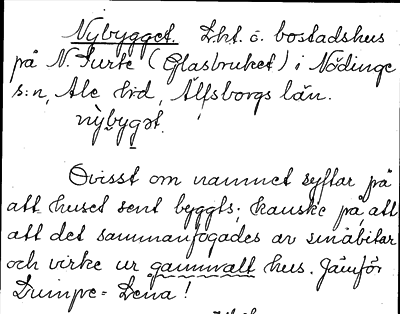 Nybygget. Lht. o. bostadshus
på N. Surte (Glasbruket) i Nödinge
s:n, Ale hrd, Älfsborgs län.
nỳbygət.
Ovisst om namnet syftar på
att huset sent byggts; kanske på att
att det sammanfogades av småbitar
och virke ur gammalt hus. Jämför
Lumpe-Lena!